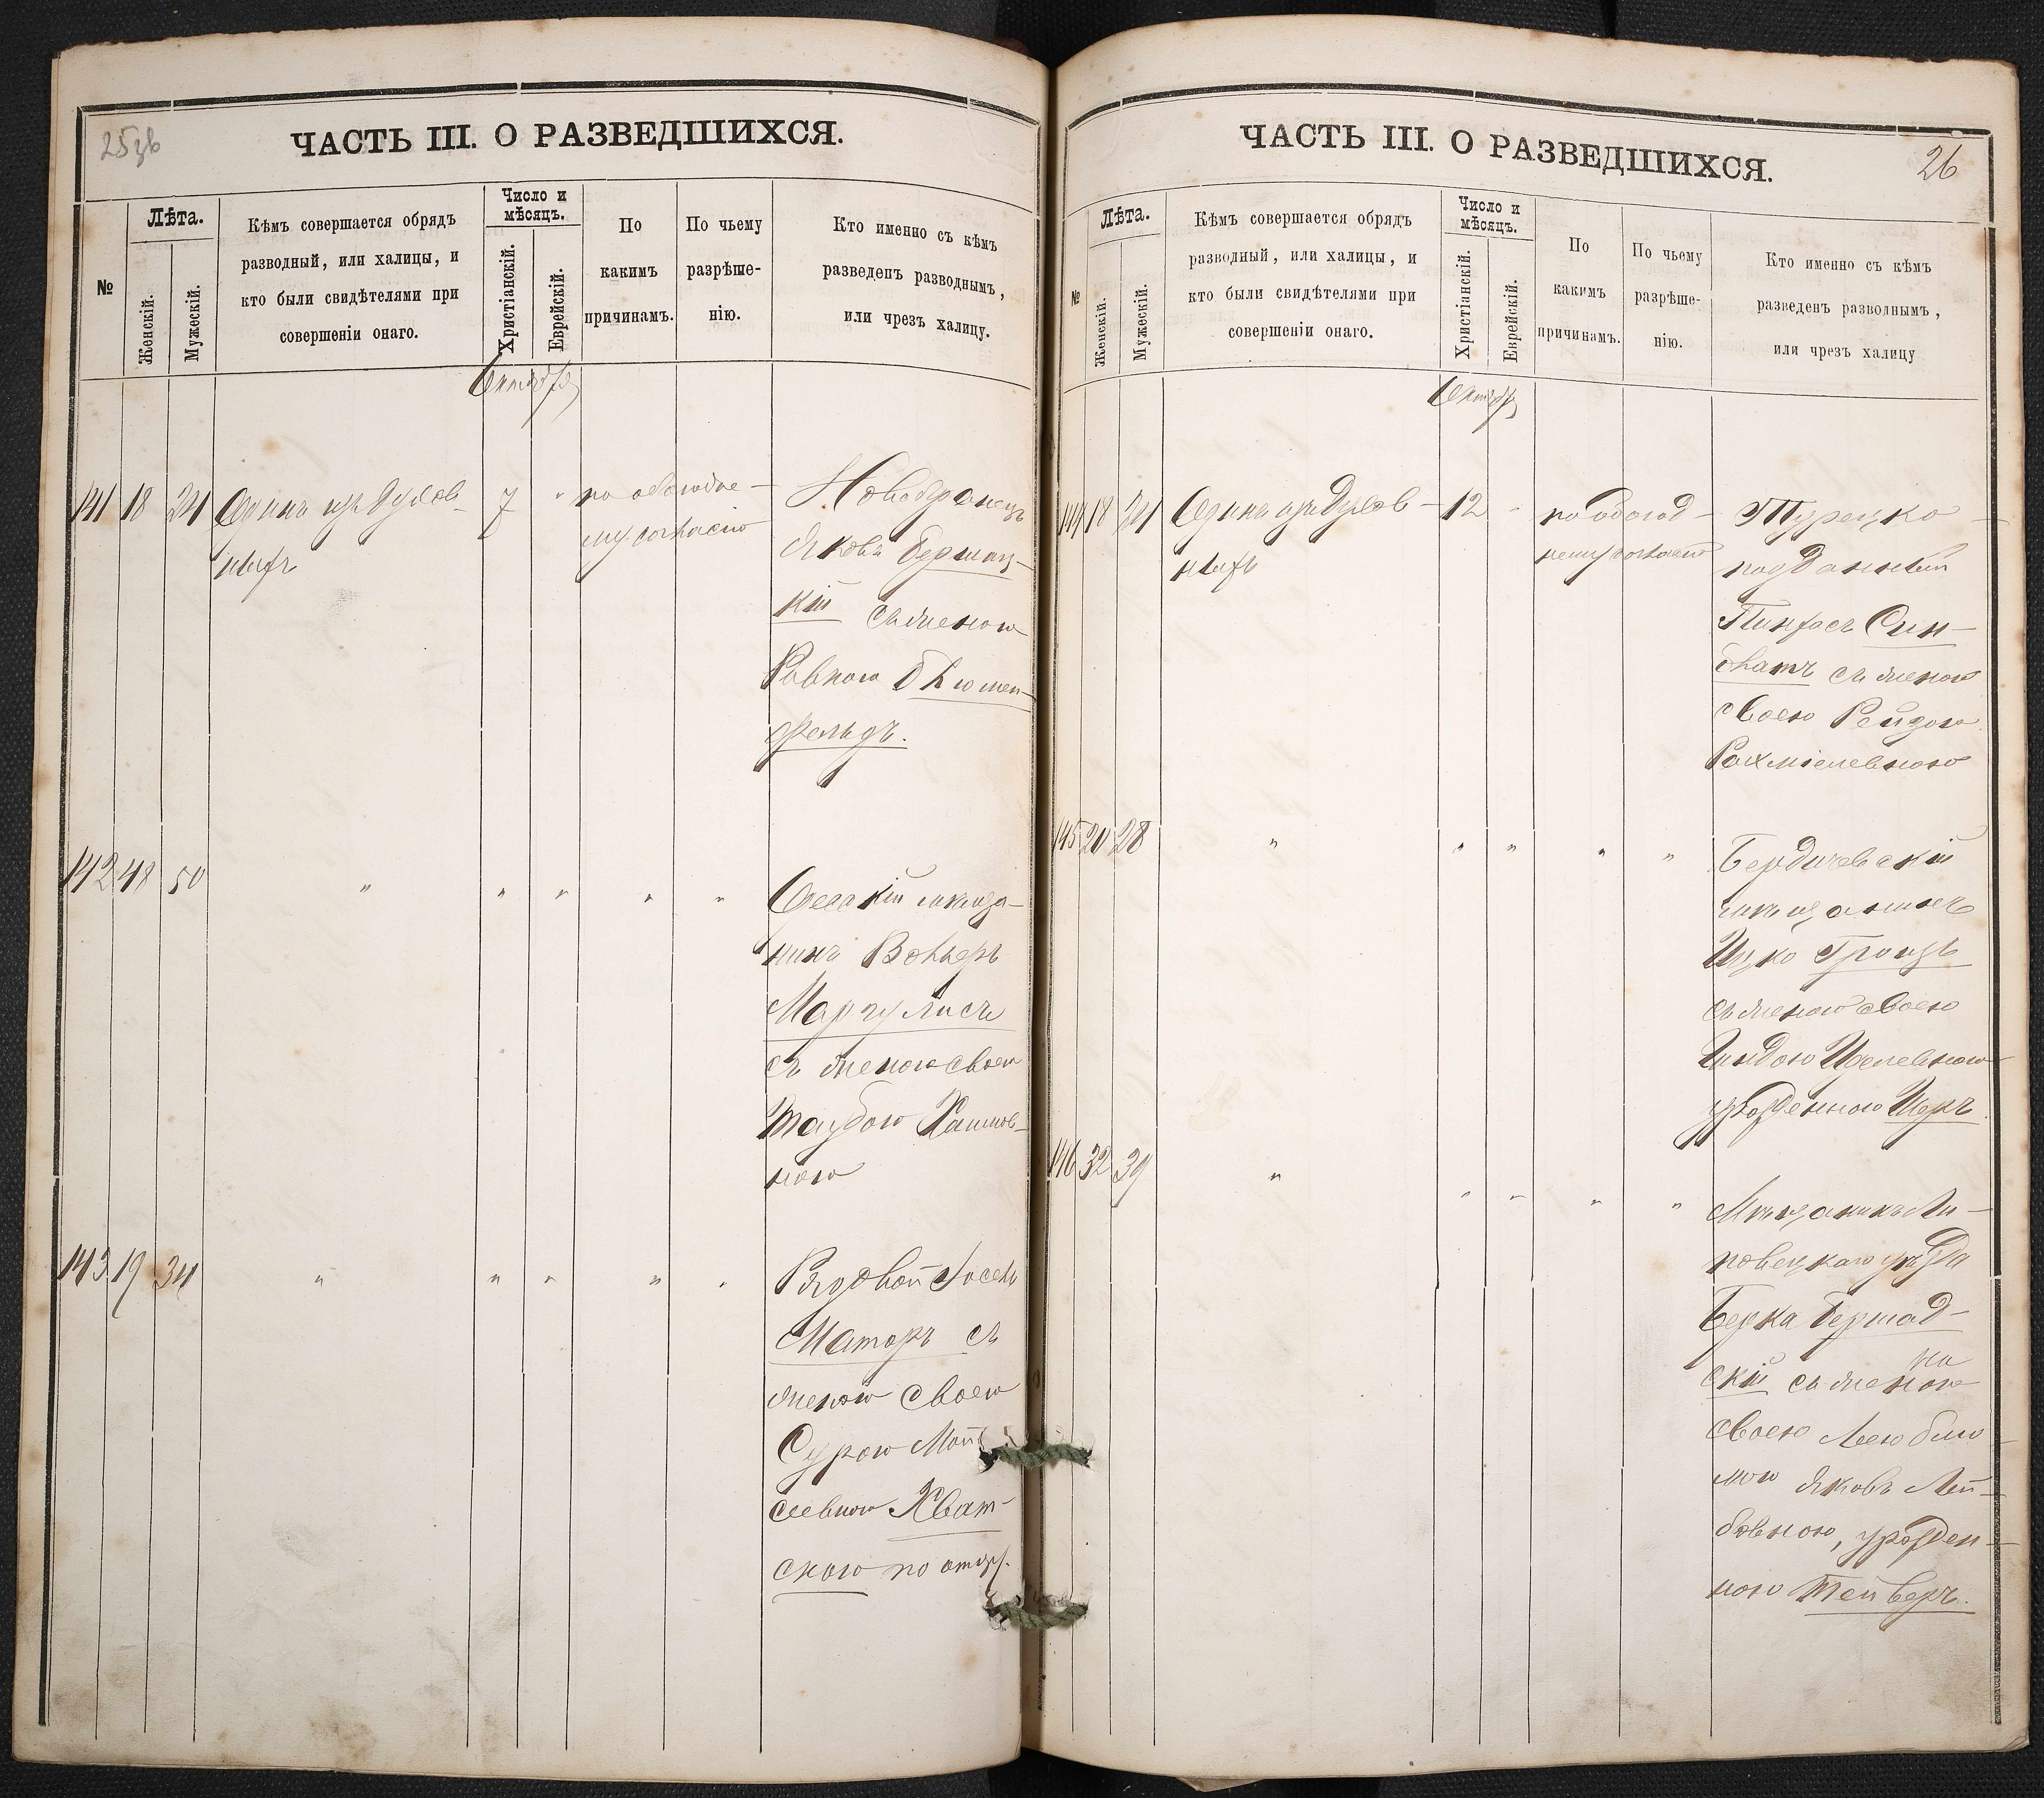 25зв
ЧАСТЬ III. О РАЗВЕДШИХСЯ.
№
Лѣта.
Женскій.
Мужескій.
Кѣмъ совершается обрядъ
разводный, или халицы, и
кто были свидѣтелями при
совершеніи онаго.
Число и
мѣсяцъ.
Христіанскій.
Еврейскій.
По
какимъ
причинамъ.
По чьему
разрѣше-
нію.
Кто именно съ кѣмъ
разведенъ разводнымъ,
или чрезъ халицу.
Октября
141 18 24
Одинъ изъ Духов-
ныхъ
7 "
по обоюдно-
му согласію
Новобранецъ
Яковъ Бершац-
кій съ женою
Ривною Блюмен-
фельдъ.
142 48 50 " " " " "
Одесскій мѣща-
нинъ Вольеръ
Маргулисъ
съ женою своею
Таубою Хаимов-
ною
143 19 34 " " " " "
Рядовой Іосель
Маторъ съ
женою своею
Сурою Мой
сеевною Хват-
скою по отцу.
ЧАСТЬ III. О РАЗВЕДШИХСЯ.
26
№
Лѣта.
Женскій.
Мужескій.
Кѣмъ совершается обрядъ
разводный, или халицы, и
кто были свидѣтелями при
совершеніи онаго.
Число и
мѣсяцъ.
Христіанскій.
Еврейскій.
По
какимъ
причинамъ.
По чьему
разрѣше-
нію.
Кто именно съ кѣмъ
разведенъ разводнымъ,
или чрезъ халицу
Октября
144 18 24
Одинъ изъ Духов-
ныхъ
12 "
по обоюд-
ному согласію
Турецко-
подданный
Пинхасъ Син-
блатъ съ женою
своею Рейзою
Рахміелевною
145 20 28 " " " " "
Бердичевскій
мѣщанинъ
Ицко Троицъ
съ женою своею
Индою Ицелевною
урожденною Шеръ.
146 32 39 " " " " "
Мѣщанинъ Ли-
повецкаго уѣзда
Берка Бершад-
скій съ женою
своею Леею Блю
мою Яковъ Лей-
бовною, урожден-
ною Тейверъ.